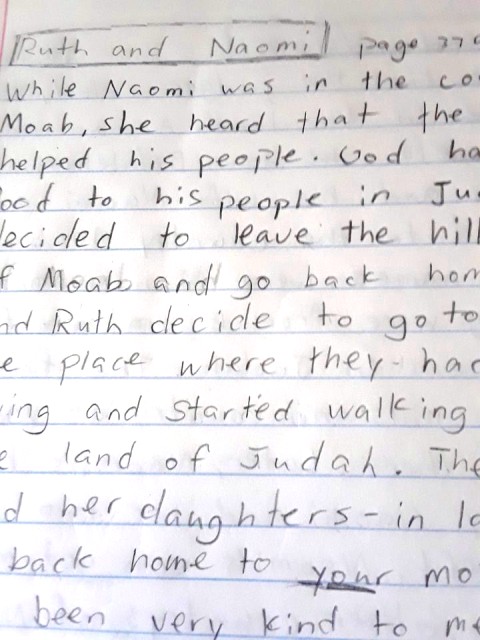 Ruth and Naomi page 379
While Naomi was in the
Moab, she heard that the
helped his people. God
to his people in
to leave the
Moab and go back
Ruth decide to go to
place where they
and started walking
land of Judah.
her daughters-in
back home to your
been very kind to